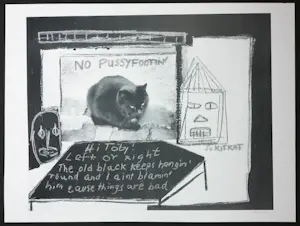 NO PUSSYFOOTIN'
Hi Toby!
Left or right
The old black keeps hangin'
round and I aint blamin'
him cause things are bad